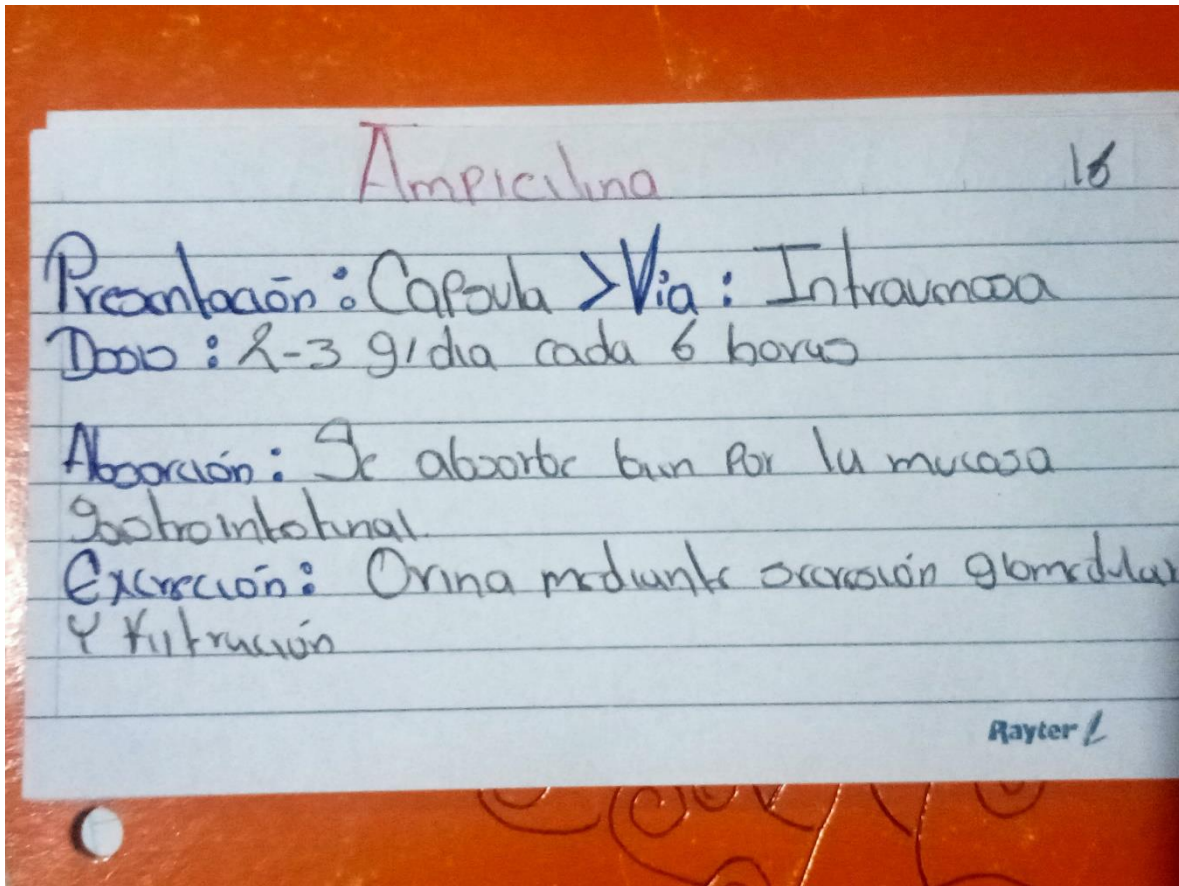 Ampicilina 16
Presentación: Capsula > Vía: Intravenosa
Dosis: 2-3 g/dia cada 6 horas
Absorción: Se absorbe bien por la mucosa
gastrointestinal.
Excreción: Orina mediante secresión glomedular
Y filtración
Rayter